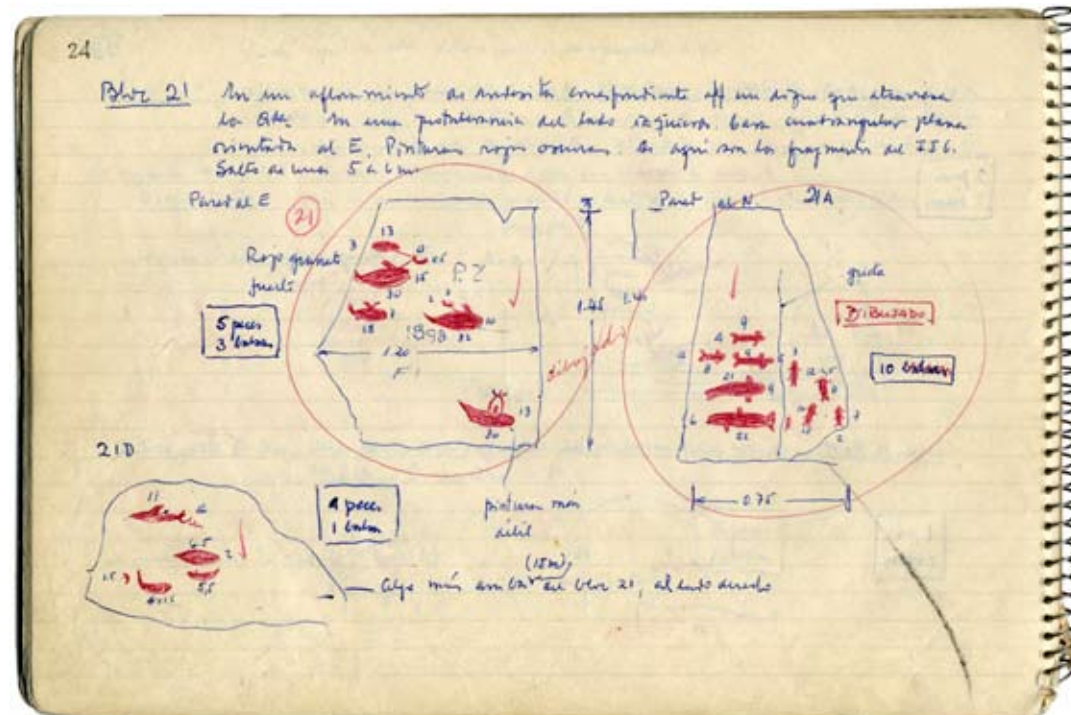 24
Bloc 21 En un afloramiento de andesita correspondiente a un dique que atraviesa
la Qda. En una protuberancia del lado izquierdo. Cara cuadrangular plana
orientada al E. Pinturas rojas oscuras. De aquí son los fragmentos del
Salto de unos 5 a 6 m.
Pared al E
21
Pared al N. 21A
Rojo granate
fuerte
5 peces
3 balsas
13
3
15
30
18
1898
32
1.20
13
30
dibujado
1.45
1.40
grieta
DIBUJADO
10 balsas
9
4
8
9
21
9
6
21
0.75
21D
11
4
4.5
2
1.5
5,5
4 peces
1 balsa
pintura más
débil
(15m)
Algo más arriba del bloc 21, al lado derecho